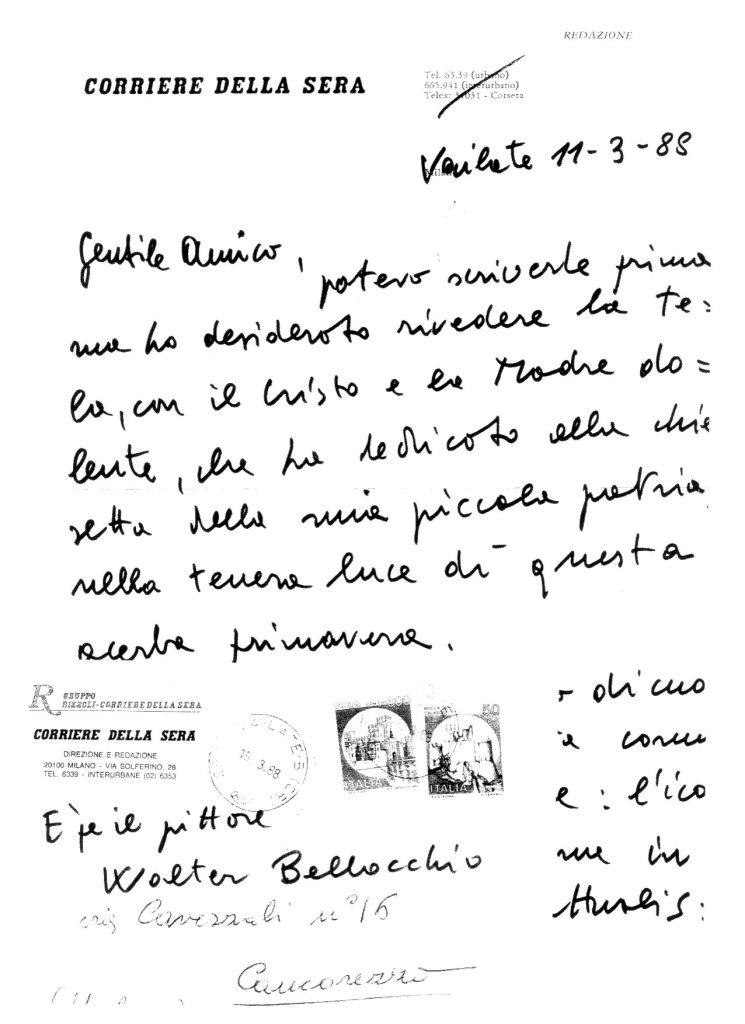 REDAZIONE
CORRIERE DELLA SERA
Tel. 63.39 (urbano)
665.941 (interurbano)
Telex: 31031 - Corsera
Vailate 11-3-88
Gentile Amico,
potevo scriverle prima
ma ho desiderato rivedere la te=
la, con il Cristo e la Madre do=
lente, che ha dedicato alla chie
setta della mia piccola patria
nella tenera luce di questa
acerba primavera.
R GRUPPO
RIZZOLI-CORRIERE DELLA SERA
CORRIERE DELLA SERA
DIREZIONE E REDAZIONE
20100 MILANO - VIA SOLFERINO, 28
TEL. 6339 - INTERURBANE (02) 6353
VAILATE (CR)
15.3.88
50
ITALIA
ITALIA
di cuo
e come
e : l'ico
me in
E ill pittore
Walter Bellocchio
via Cavezzali n° 16